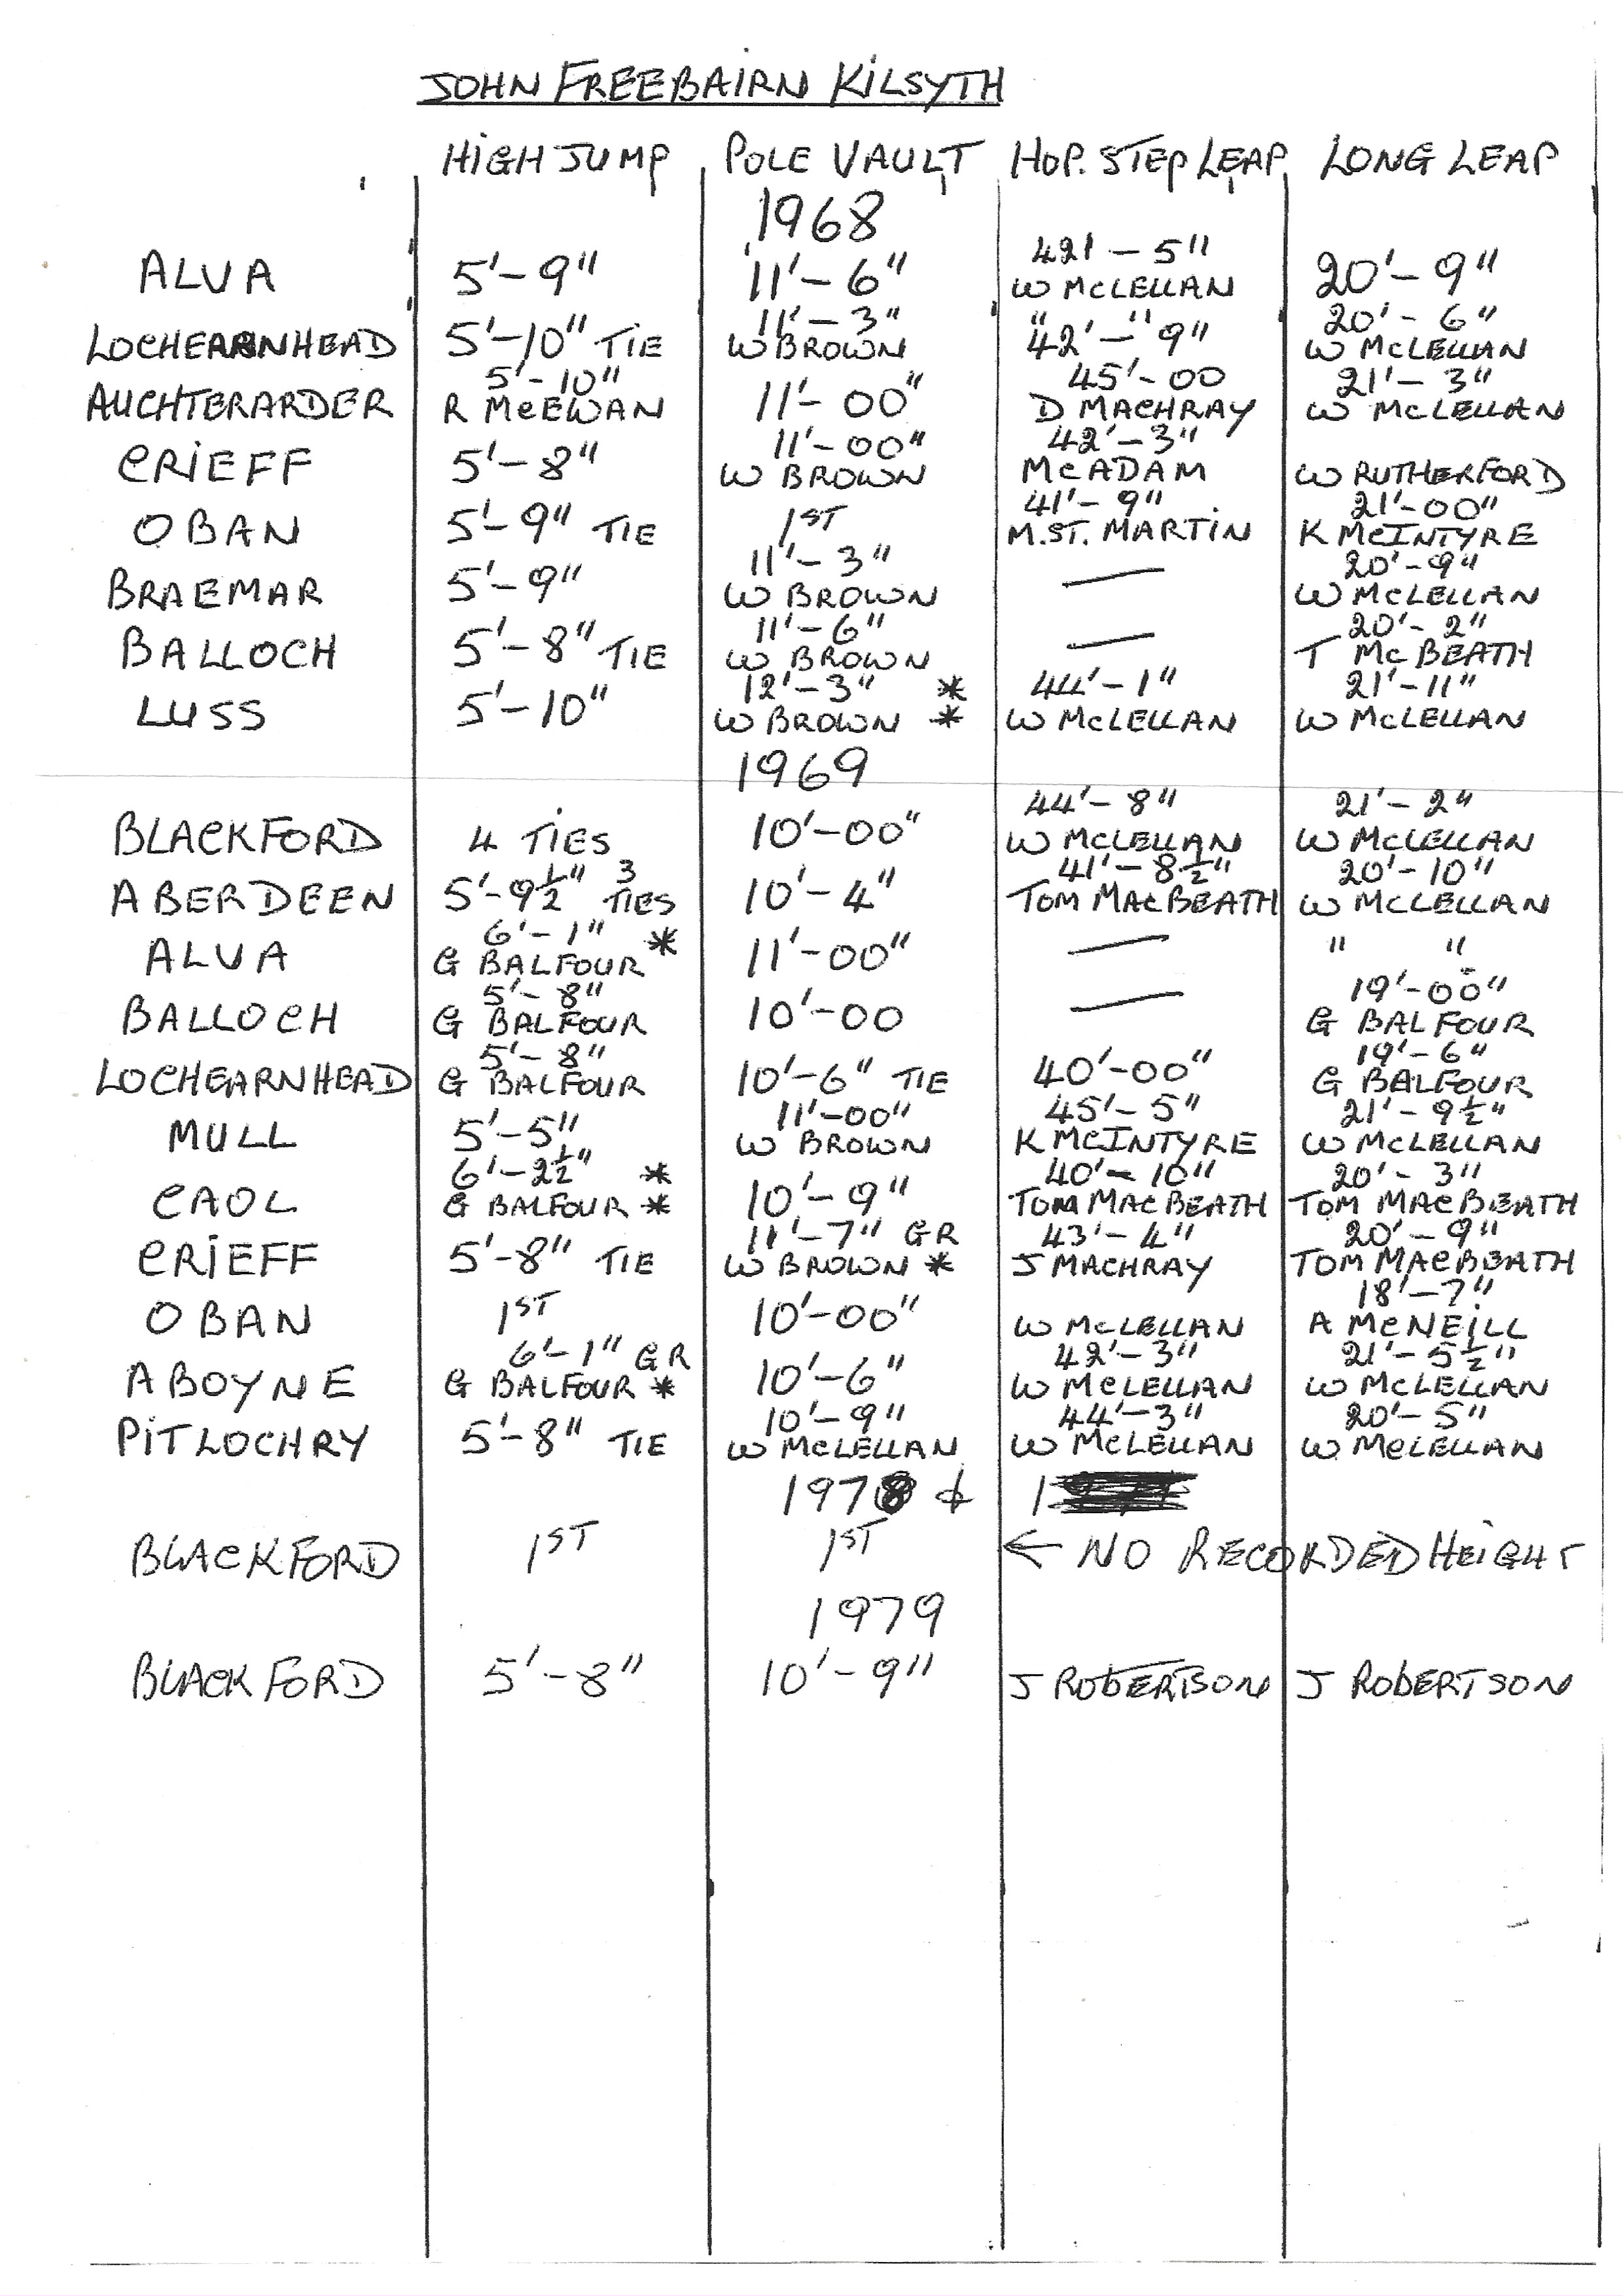 JOHN FREEBAIRN KILSYTH
HIGH JUMP POLE VAULT HOP. STEP LEAP LONG LEAP
1968
42' - 5"
ALVA 5'-9" 11'-6" W McLELLAN 20'-9"
11'-3" " " 20'-6"
LOCHEARNHEAD 5'-10" TIE W BROWN 42'-9" W McLELLAN
5'-10" 45'-00 21'-3"
AUCHTERARDER R McEWAN 11'-00" D MACHRAY W McLELLAN
11'-00" 42'-3"
CRIEFF 5'-8" W BROWN McADAM W RUTHERFORD
41'-9" 21'-00"
OBAN 5'-9" TIE 1ST M. ST. MARTIN K McINTYRE
11'-3" 20'-9"
BRAEMAR 5'-9" W BROWN — W McLELLAN
11'-6" 20'-2"
BALLOCH 5'-8" TIE W BROWN — T McBEATH
12'-3" * 44'-1" 21'-11"
LUSS 5'-10" W BROWN * W McLELLAN W McLELLAN
1969
44'-8" 21'-2"
BLACKFORD 4 TIES 10'-00" W McLELLAN W McLELLAN
41'-8½" 20'-10"
ABERDEEN 5'-9½" 3 TIES 10'-4" TOM MACBEATH W McLELLAN
6'-1" *
ALVA G BALFOUR 11'-00" — " "
5'-8" 19'-00"
BALLOCH G BALFOUR 10'-00 — G BALFOUR
5'-8" 19'-6"
LOCHEARNHEAD G BALFOUR 10'-6" TIE 40'-00" G BALFOUR
11'-00" 45'-5" 21'-9½"
MULL 5'-5" W BROWN K McINTYRE W McLELLAN
6'-2½" * 40'-10" 20'-3"
CAOL G BALFOUR * 10'-9" TOM MACBEATH TOM MACBEATH
11'-7" GR 43'-4" 20'-9"
CRIEFF 5'-8" TIE W BROWN * J MACHRAY TOM MACBEATH
18'-7"
OBAN 1ST 10'-00" W McLELLAN A McNEILL
6'-1" GR 42'-3" 21'-5½"
ABOYNE G BALFOUR * 10'-6" W McLELLAN W McLELLAN
10'-9" 44'-3" 20'-5"
PITLOCHRY 5'-8" TIE W McLELLAN W McLELLAN W McLELLAN
1978
BLACKFORD 1ST 1ST ← NO RECORDED HEIGHT
1979
BLACKFORD 5'-8" 10'-9" J ROBERTSON J ROBERTSON